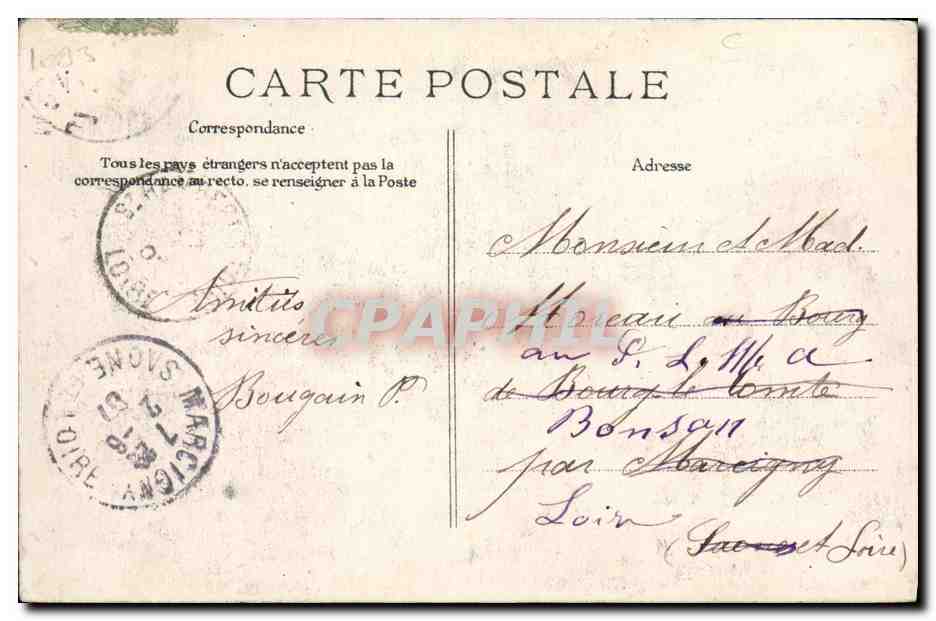 1093
CARTE POSTALE
Correspondance
Tous les pays étrangers n'acceptent pas la
correspondance au recto, se renseigner à la Poste
Amitiés
sincères
Bougain P.
MARCIGNY
SAONE-ET-LOIRE
Adresse
Monsieur et Mad.
Moreau au Bourg
au P. L. M. a
de Bourg le Comte
Bonson
par Marcigny
Loire
(Saone et Loire)
CPAPHIL